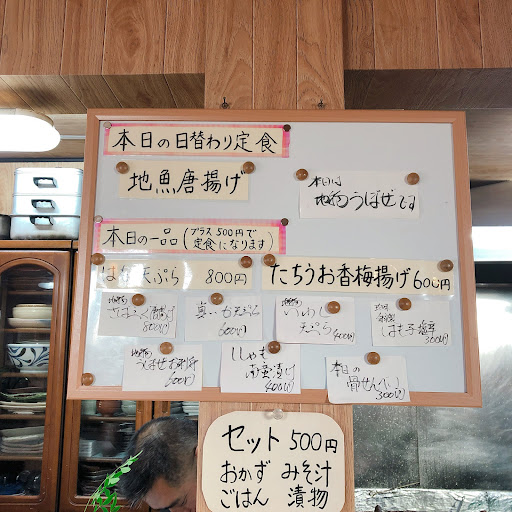 本日の日替わり定食
地魚唐揚げ
本日は
地物うぼぜです
本日の一品(プラス500円で
定食になります)
はも天ぷら 800円
たちうお香梅揚げ600円
地物
さばふぐ唐揚げ
真いか天ぷら
600円
地物
いわし
天ぷら
400円
300円
地物
うぼぜ
600円
ししゃも
南蛮漬け
400円
本日の
骨せんべい
300円
セット 500円
おかず みそ汁
ごはん 漬物